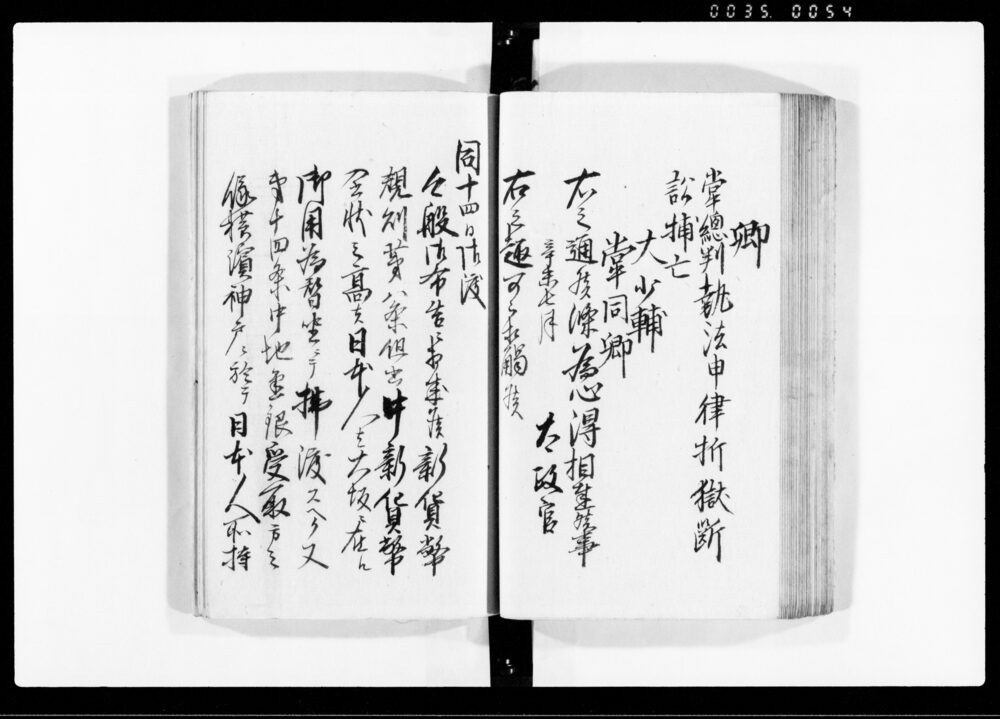 0035. 0054
卿
掌總判執法申律折獄断
訟捕亡
大少輔
掌同卿
右之通候條為心得相達候事
辛未七月
太政官
右之趣可被相觸候
同十四日御渡
今般御布告ニ相成候新貨幣
規則第八条但書中新貨幣
金状之高者日本人ニ者大坂ニ在ル
御用為替坐ニテ拂渡スヘク又
第十四条中地金銀受取方之
儀横濱神戸ニ於テ日本人所持